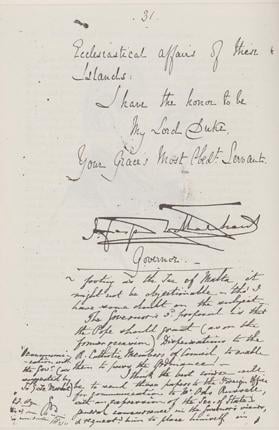 31.
Ecclesiastical affairs of these
Islands.
I have the honor to be
My Lord Duke,
Your Grace's Most Obedt. Servant.
Governor
footing as the See of Malta, it
might not be objectionable – tho' I
have some doubt on the subject.
The Governor's 3d. proposal is that
the Pope should grant (as on the
former occasion) Dispensations to the
R. Catholic Members of Council, to enable
them to
I think the best course will
be to send these papers to the Foreign Office
for communication to Mr. Odo Russell
with an expression of the Sec. of State's
general concurrence in the Governor's views,
& request him to place himself in
with
the Govr.
suggested by